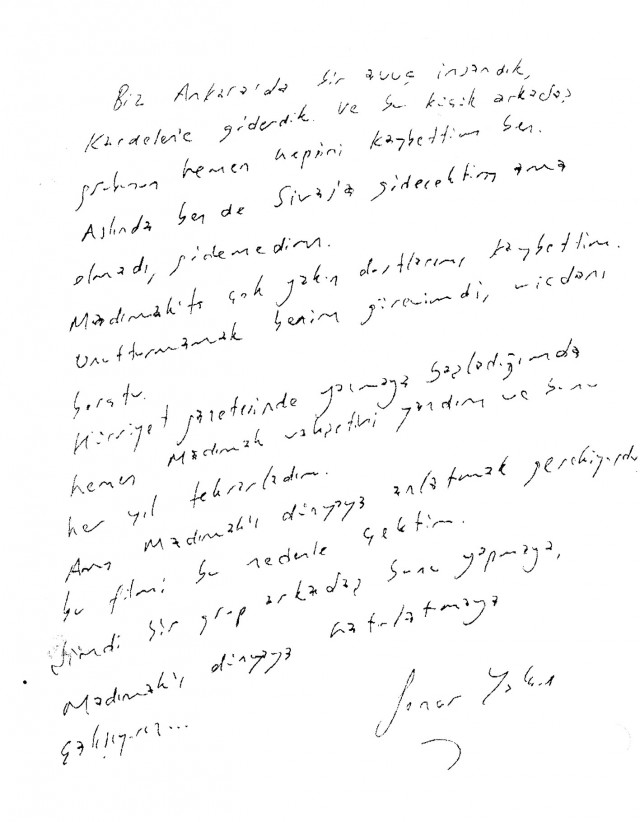 Biz Ankara'da bir avuç insandık,
Kardelen'e giderdik. ve bu küçük arkadaş
grubunun hemen hepsini kaybettim ben.
Aslında ben de Sivas'a gidecektim ama
olmadı, gidemedim.
Madımak'ta çok yakın dostlarımı kaybettim.
Unutturmamak benim görevimdi, vicdani
borçtu.
Hürriyet gazetesinde yazmaya başladığımda
hemen Madımak vahşetini yazdım ve bunu
her yıl tekrarladım.
Ama Madımak'ı dünyaya anlatmak gerekiyordu,
bu filmi bu nedenle çektim.
Şimdi bir grup arkadaş bunu yapmaya,
Madımak'ı dünyaya hatırlatmaya
çalışıyoruz...
Soner Yalçın